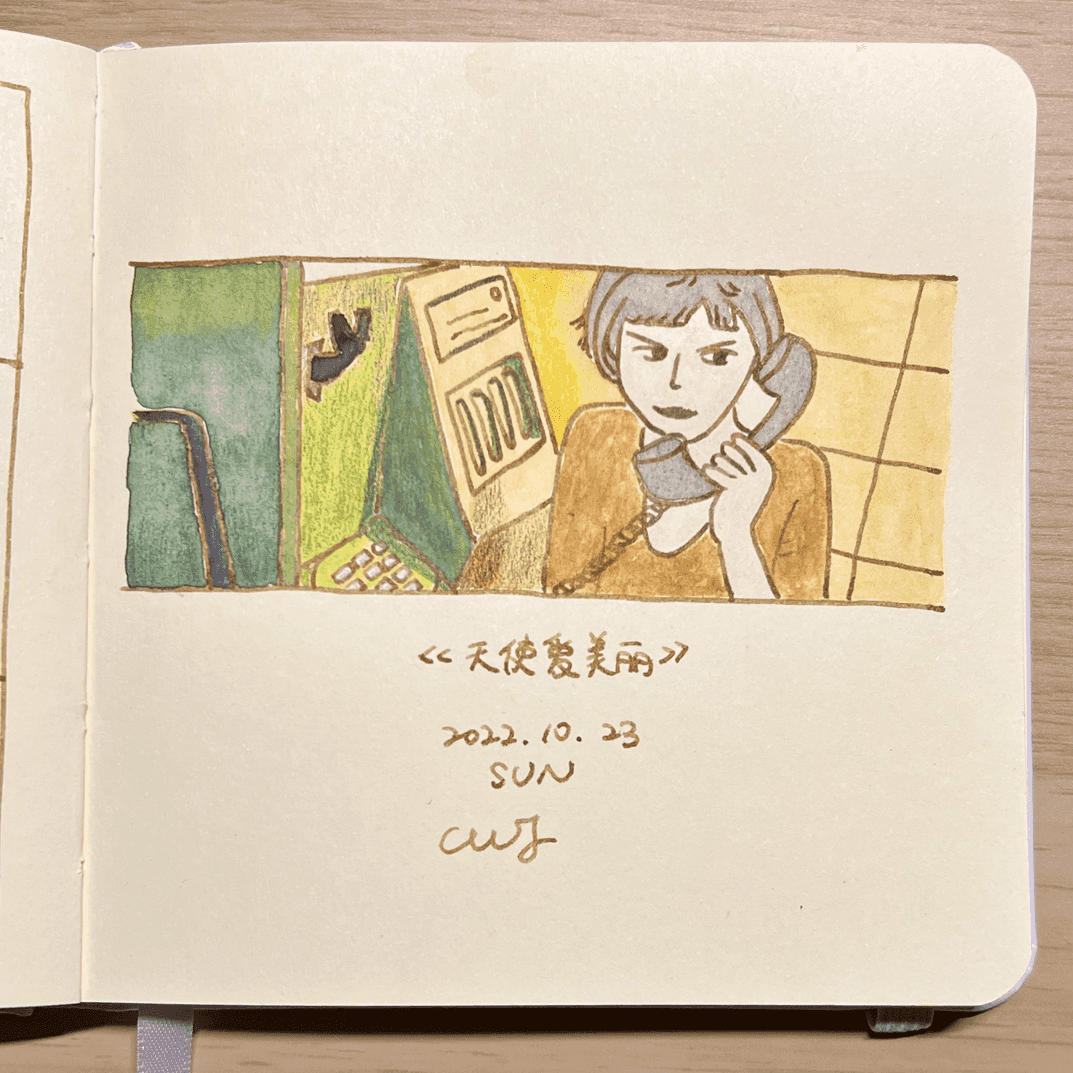 <<天使爱美丽>>
2022.10.23
SUN
cwj